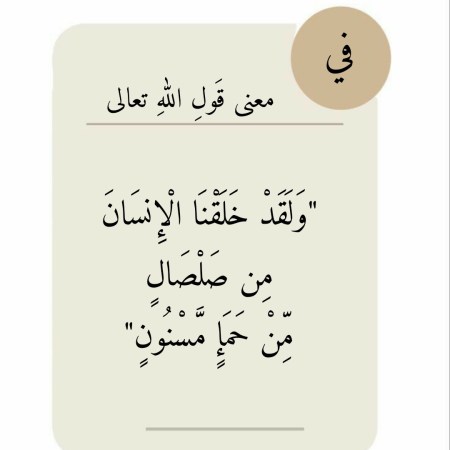 في
معنى قَولِ اللهِ تعالى
"وَلَقَدْ خَلَقْنَا الْإِنسَانَ
مِن صَلْصَالٍ
مِّنْ حَمَإٍ مَّسْنُونٍ"